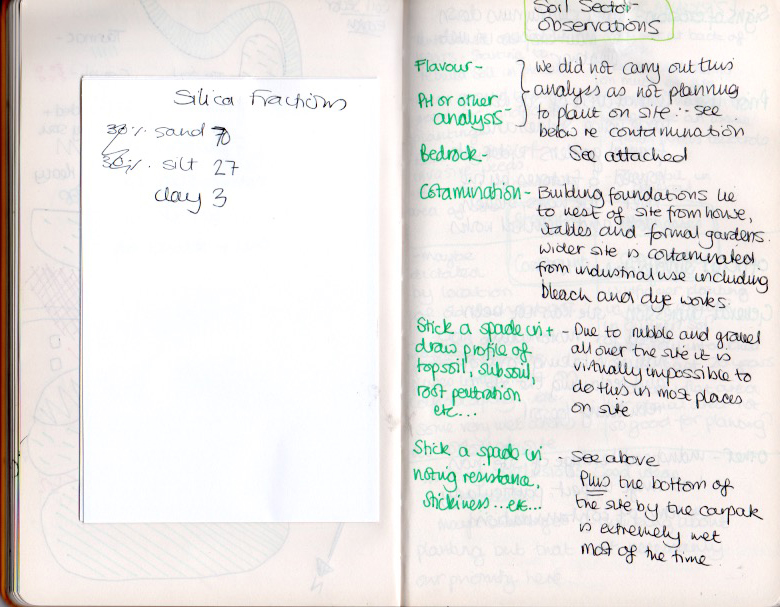 Silica Fractions
30%. sand 70
30%. silt 27
clay 3
Soil Sector
Observations
Flavour -
PH or other
analysis -
we did not carry out this
analysis as not planning
to plant on site ∴ see
below re contamination
Bedrock - See attached
Cotamination - Building foundations lie
to west of site from house,
stables and formal gardens.
Wider site is contaminated
from industrial use including
bleach and dye works.
Stick a spade in + - Due to rubble and gravel
draw profile of all over the site it is
topsoil, subsoil, virtually impossible to
root pentration do this in most places
etc... on site
Stick a spade in - See above
noting resistance, Plus the bottom of
stickiness...etc... the site by the carpak
is extremely wet
most of the time